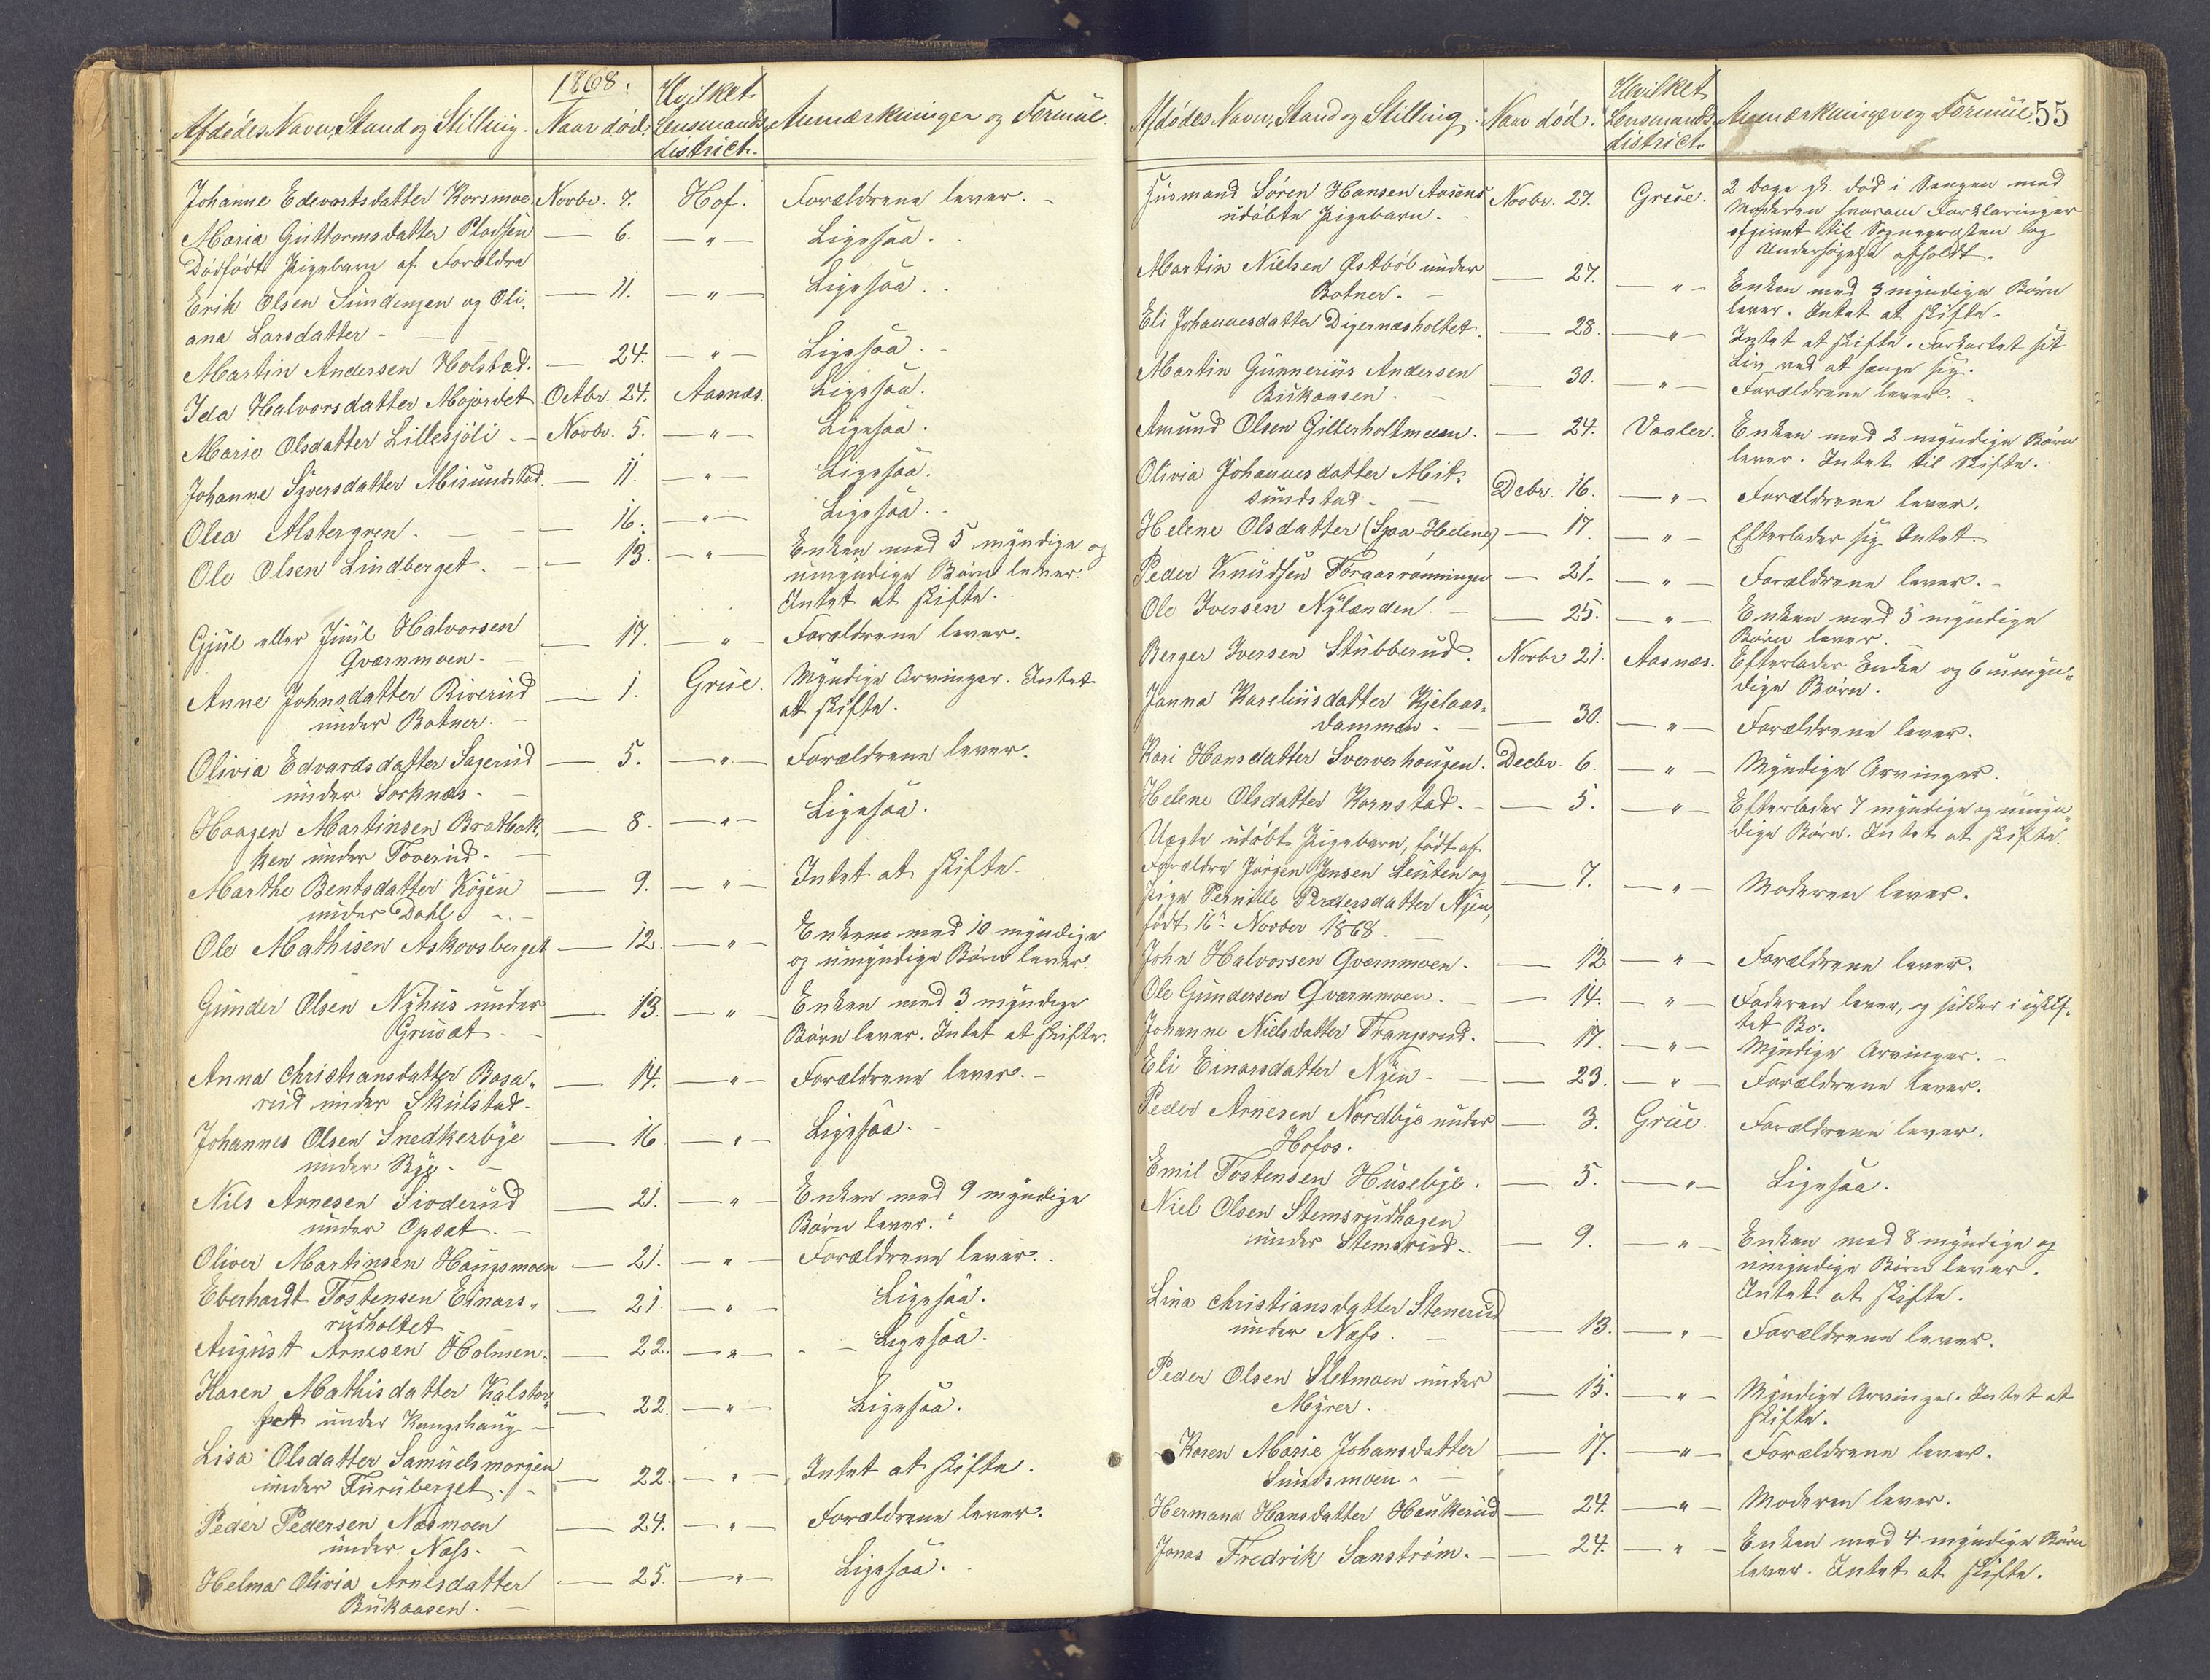 1868.
Afdødes Navn, Stand og Stilling. Naar død. Hvilket Lensmands district. Anmærkninger og Formue.
Johanne Edevartsdatter Korsmoe Novbr. 7. Hof. Forældrene lever.
Maria Guttormsdatter Pladsen — 6. — " — Ligesaa.
Dødfødt Pigebarn af Forældre
Erik Olsen Sundengen og Oli- — 11. — " — Ligesaa.
ana Larsdatter
Martin Andersen Holstad. — 24. — " — Ligesaa.
Ida Halvorsdatter Mojordet Octbr. 24. Aasnæs. Ligesaa.
Marie Olsdatter Lillesjöli — Novbr. 5. — " — Ligesaa.
Johanne Syversdatter Misundstad — 11. — " — Ligesaa.
Olea Alstergren. — 16. — " — Ligesaa.
Ole Olsen Lindberget. — 13. — " — Enken med 5 myndige og
umyndige Børn lever.
Intet at skifte.
Gjul eller Juul Halvorsen — 17. — " — Forældrene lever.
Qværnmoen.
Anne Johnsdatter Riverud — 1. Grue. Myndige Arvinger. Intet
under Botner. at skifte.
Olivia Edvardsdatter Sagerud — 5. — " — Forældrene lever.
under Sorknæs.
Haagen Martinsen Bratbak- — 8. — " — Ligesaa.
ken under Toverud.
Marthe Bentsdatter Köjen — 9. — " — Intet at skifte.
under Dahl
Ole Mathisen Askovsberget — 12. — " — Enken med 10 myndige
og umyndige Børn lever.
Gunder Olsen Nyhus under — 13. — " — Enken med 3 myndige
Gruset Børn lever. Intet at skifte.
Anna Christiansdatter Basa- — 14. — " — Forældrene lever.
rud under Skulstad.
Johannes Olsen Snedkerbye — 16 — " — Ligesaa.
under Bye.
Nils Arnesen Sivderud — 21. — " — Enken med 9 myndige
under Opsæt. Børn lever.
Oliver Martinsen Haugsmoen — 21. — " — Forældrene lever.
Eberhardt Tostensen Einars- — 21. — " — Ligesaa.
rudholtet
August Arnesen Holmen. — 22. — " — Ligesaa.
Karen Mathisdatter Kalstor- — 22. — " — Ligesaa.
pet under Kongshaug
Lisa Olsdatter Samuelsmorgen — 22. — " — Intet at skifte.
under Furuberget.
Peder Pedersen Næsmoen — 24. — " — Forældrene lever.
under Næss.
Helma Olivia Arnesdatter — 25. — " — Ligesaa.
Bukaasen.
55
Afdødes Navn, Stand og Stilling. Naar død. Hvilket Lensmands district. Anmærkninger og Formue.
Husmand Sören Hansen Aasens Novbr. 27. Grue. 2 Dage gl. død i Sengen med
udøbte Pigebarn. Moderen hvorom Forklaringer
afgivet til Sognepræsten og
Undersøgelse afholdt.
Martin Nielsen Østböl under — 27. — " — Enken med 3 myndige Børn
Botner. lever. Intet at skifte.
Eli Johannesdatter Digernæsholtet. — 28. — " — Intet at skifte. Forkortet sit
Liv ved at hænge sig.
Martin Gunnerius Andersen — 30. — " — Forældrene lever.
Bukaasen.
Amund Olsen Gitterholtmoen. — 24. Vaaler. Enken med 2 myndige Børn
lever. Intet til Skifte.
Olivia Johannesdatter Mit-
sundstad — Debr. 16. — " — Forældrene lever.
Helene Olsdatter (Spaa-Helene) — 17. — " — Efterlader sig Intet.
Peder Knudsen Töraasrønningen — 21. — " — Forældrene lever.
Ole Iversen Nylænden. — 25. — " — Enken med 5 myndige
Børn lever.
Berger Iversen Stubberud. Novbr 21. Aasnæs. Efterlader Enke og 6 umyn-
dige Børn.
Janna Kareliusdatter Kjelaas- — 30. — " — Forældrene lever.
dammen.
Kari Hansdatter Sververhougen. Decbr. 6. — " — Myndige Arvinger.
Helene Olsdatter Kornstad. — 5. — " — Efterlader 7 myndige og umyn-
dige Børn. Intet at skifte.
Uægte udøbt Pigebarn, født af
Forældre Jørgen Jensen Leuten og — 7. — " — Moderen lever.
Pige Pernille Pedersdatter Nyen,
født 16de Novber 1868.
John Halvorsen Qværnmoen. — 12. — " — Forældrene lever.
Ole Gundersen Qværnmoen. — 14. — " — Faderen lever, og sidder i uskif-
tet Bo.
Johanne Nielsdatter Trangsrud. — 17. — " — Myndige Arvinger.
Eli Einarsdatter Nyen. — 23. — " — Forældrene lever.
Peder Arnesen Nordbye under — 3. Grue. Forældrene lever.
Hofos.
Emil Tostensen Husebye. — 5. — " — Ligesaa.
Niel Olsen Stemsrudhagen
under Stemsrud. — 9. — " — Enken med 8 myndige og
umyndige Børn lever.
Intet at skifte.
Lina Christiansdatter Stenerud — 13. — " — Forældrene lever.
under Næss.
Peder Olsen Sletmoen under — 15. — " — Myndige Arvinger. Intet at
Myrer. skifte.
Karen Marie Johansdatter — 17. — " — Forældrene lever.
Sundsmoen.
Hermana Hansdatter Haukerud — 24. — " — Moderen lever.
Jonas Fredrik Sanström. — 24. — " — Enken med 4 myndige Børn
lever. Intet at skifte.